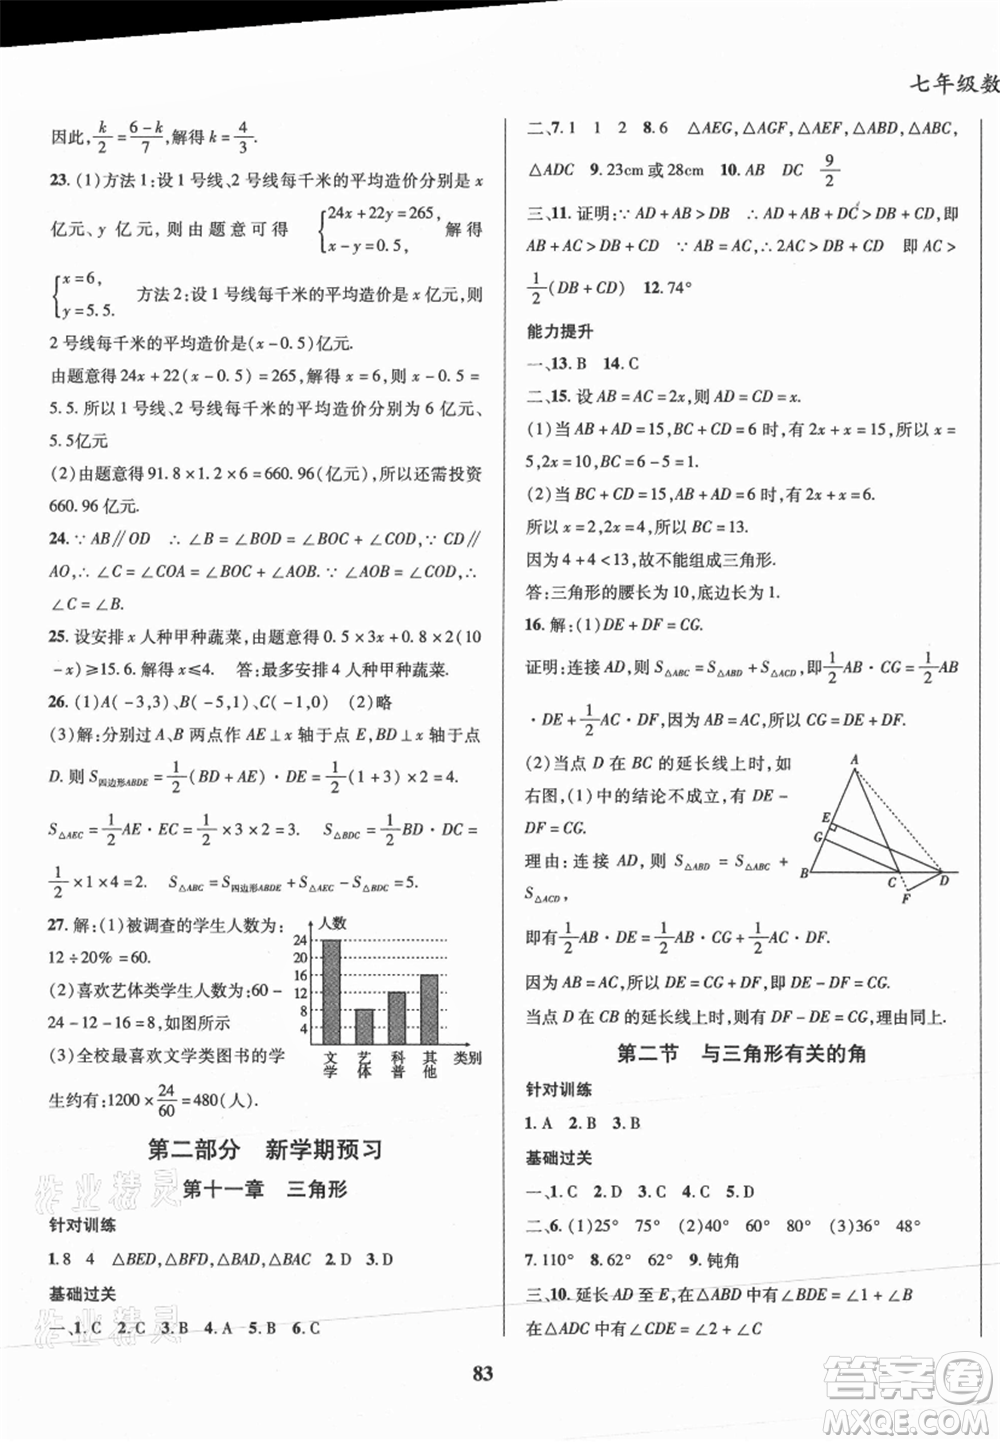 七年级数
因此,k/2=(6-k)/7,解得 k=4/3.
23.(1)方法1:设1号线、2号线每千米的平均造价分别是 x
亿元、y 亿元,由题意可得 {24x+22y=265, x-y=0.5, 解得
{x=6, y=5.5. 方法2:设1号线每千米的平均造价是 x 亿元,则
2号线每千米的平均造价是(x-0.5)亿元.
由题意得24x+22(x-0.5)=265,解得x=6,则x-0.5=
5.5.所以1号线、2号线每千米的平均造价分别为6亿元、
5.5亿元
(2)由题意得91.8×1.2×6=660.96(亿元),所以还需投资
660.96亿元.
24.∵AB∥OD ∴∠B=∠BOD=∠BOC+∠COD ∵CD∥
AO,∴∠C=∠COA=∠BOC+∠AOB ∵∠AOB=∠COD,∴
∠C=∠B.
25.设安排 x 人种甲种蔬菜,由题意得0.5×3x+0.8×2(10
-x)≥15.6.解得x≤4. 答:最多安排4人种甲种蔬菜.
26.(1)A(-3,3)、B(-5,1)、C(-1,0) (2)略
(3)解:分别过A、B两点作AE⊥x轴于点E,BD⊥x轴于点
D.则S四边形ABDE=1/2(BD+AE)·DE=1/2(1+3)×2=4.
S△AEC=1/2AE·EC=1/2×3×2=3. S△BDC=1/2BD·DC=
1/2×1×4=2. S△ABC=S四边形ABDE+S△AEC-S△BDC=5.
27.解:(1)被调查的学生人数为:
12÷20%=60.
(2)喜欢艺体类学生人数为:60-
24-12-16=8,如图所示
(3)全校最喜欢文学类图书的学
生约有:1200×24/60=480(人).
人数
24
20
16
12
8
4
文学 艺体 科普 其他 类别
第二部分 新学期预习
第十一章 三角形
针对训练
1.8 4 △BED,△BFD,△BAD,△BAC 2.D 3.D
基础过关
一、1.C 2.C 3.B 4.A 5.B 6.C
二、7.1 1 2 8.6 △AEG,△AGF,△AEF,△ABD,△ABC,
△ADC 9.23cm或28cm 10.AB DC 9/2
三、11.证明:∵AD+AB>DB ∴AD+AB+DC>DB+CD,即
AB+AC>DB+CD ∵AB=AC,∴2AC>DB+CD 即AC>
1/2(DB+CD) 12.74°
能力提升
一、13.B 14.C
二、15.设AB=AC=2x,则AD=CD=x.
(1)当AB+AD=15,BC+CD=6时,有2x+x=15,所以x=
5,2x=10,BC=6-5=1.
(2)当BC+CD=15,AB+AD=6时,有2x+x=6.
所以x=2,2x=4,所以BC=13.
因为4+4<13,故不能组成三角形.
答:三角形的腰长为10,底边长为1.
16.解:(1)DE+DF=CG.
证明:连接AD,则S△ABC=S△ABD+S△ACD,即1/2AB·CG=1/2AB
·DE+1/2AC·DF,因为AB=AC,所以CG=DE+DF.
(2)当点D在BC的延长线上时,如
右图,(1)中的结论不成立,有DE-
DF=CG.
理由:连接AD,则S△ABD=S△ABC+
S△ACD,
A
E
G
B
C
D
F
即有1/2AB·DE=1/2AB·CG+1/2AC·DF.
因为AB=AC,所以DE=CG+DF,即DE-DF=CG.
当点D在CB的延长线上时,则有DF-DE=CG,理由同上.
第二节 与三角形有关的角
针对训练
1.A 2.B 3.B
基础过关
一、1.C 2.D 3.D 4.C 5.D
二、6.(1)25° 75° (2)40° 60° 80° (3)36° 48°
7.110° 8.62° 62° 9.钝角
三、10.延长AD至E,在△ABD中有∠BDE=∠1+∠B
在△ADC中有∠CDE=∠2+∠C
83
作业精灵
作业精灵
答案圈
MXQE.COM